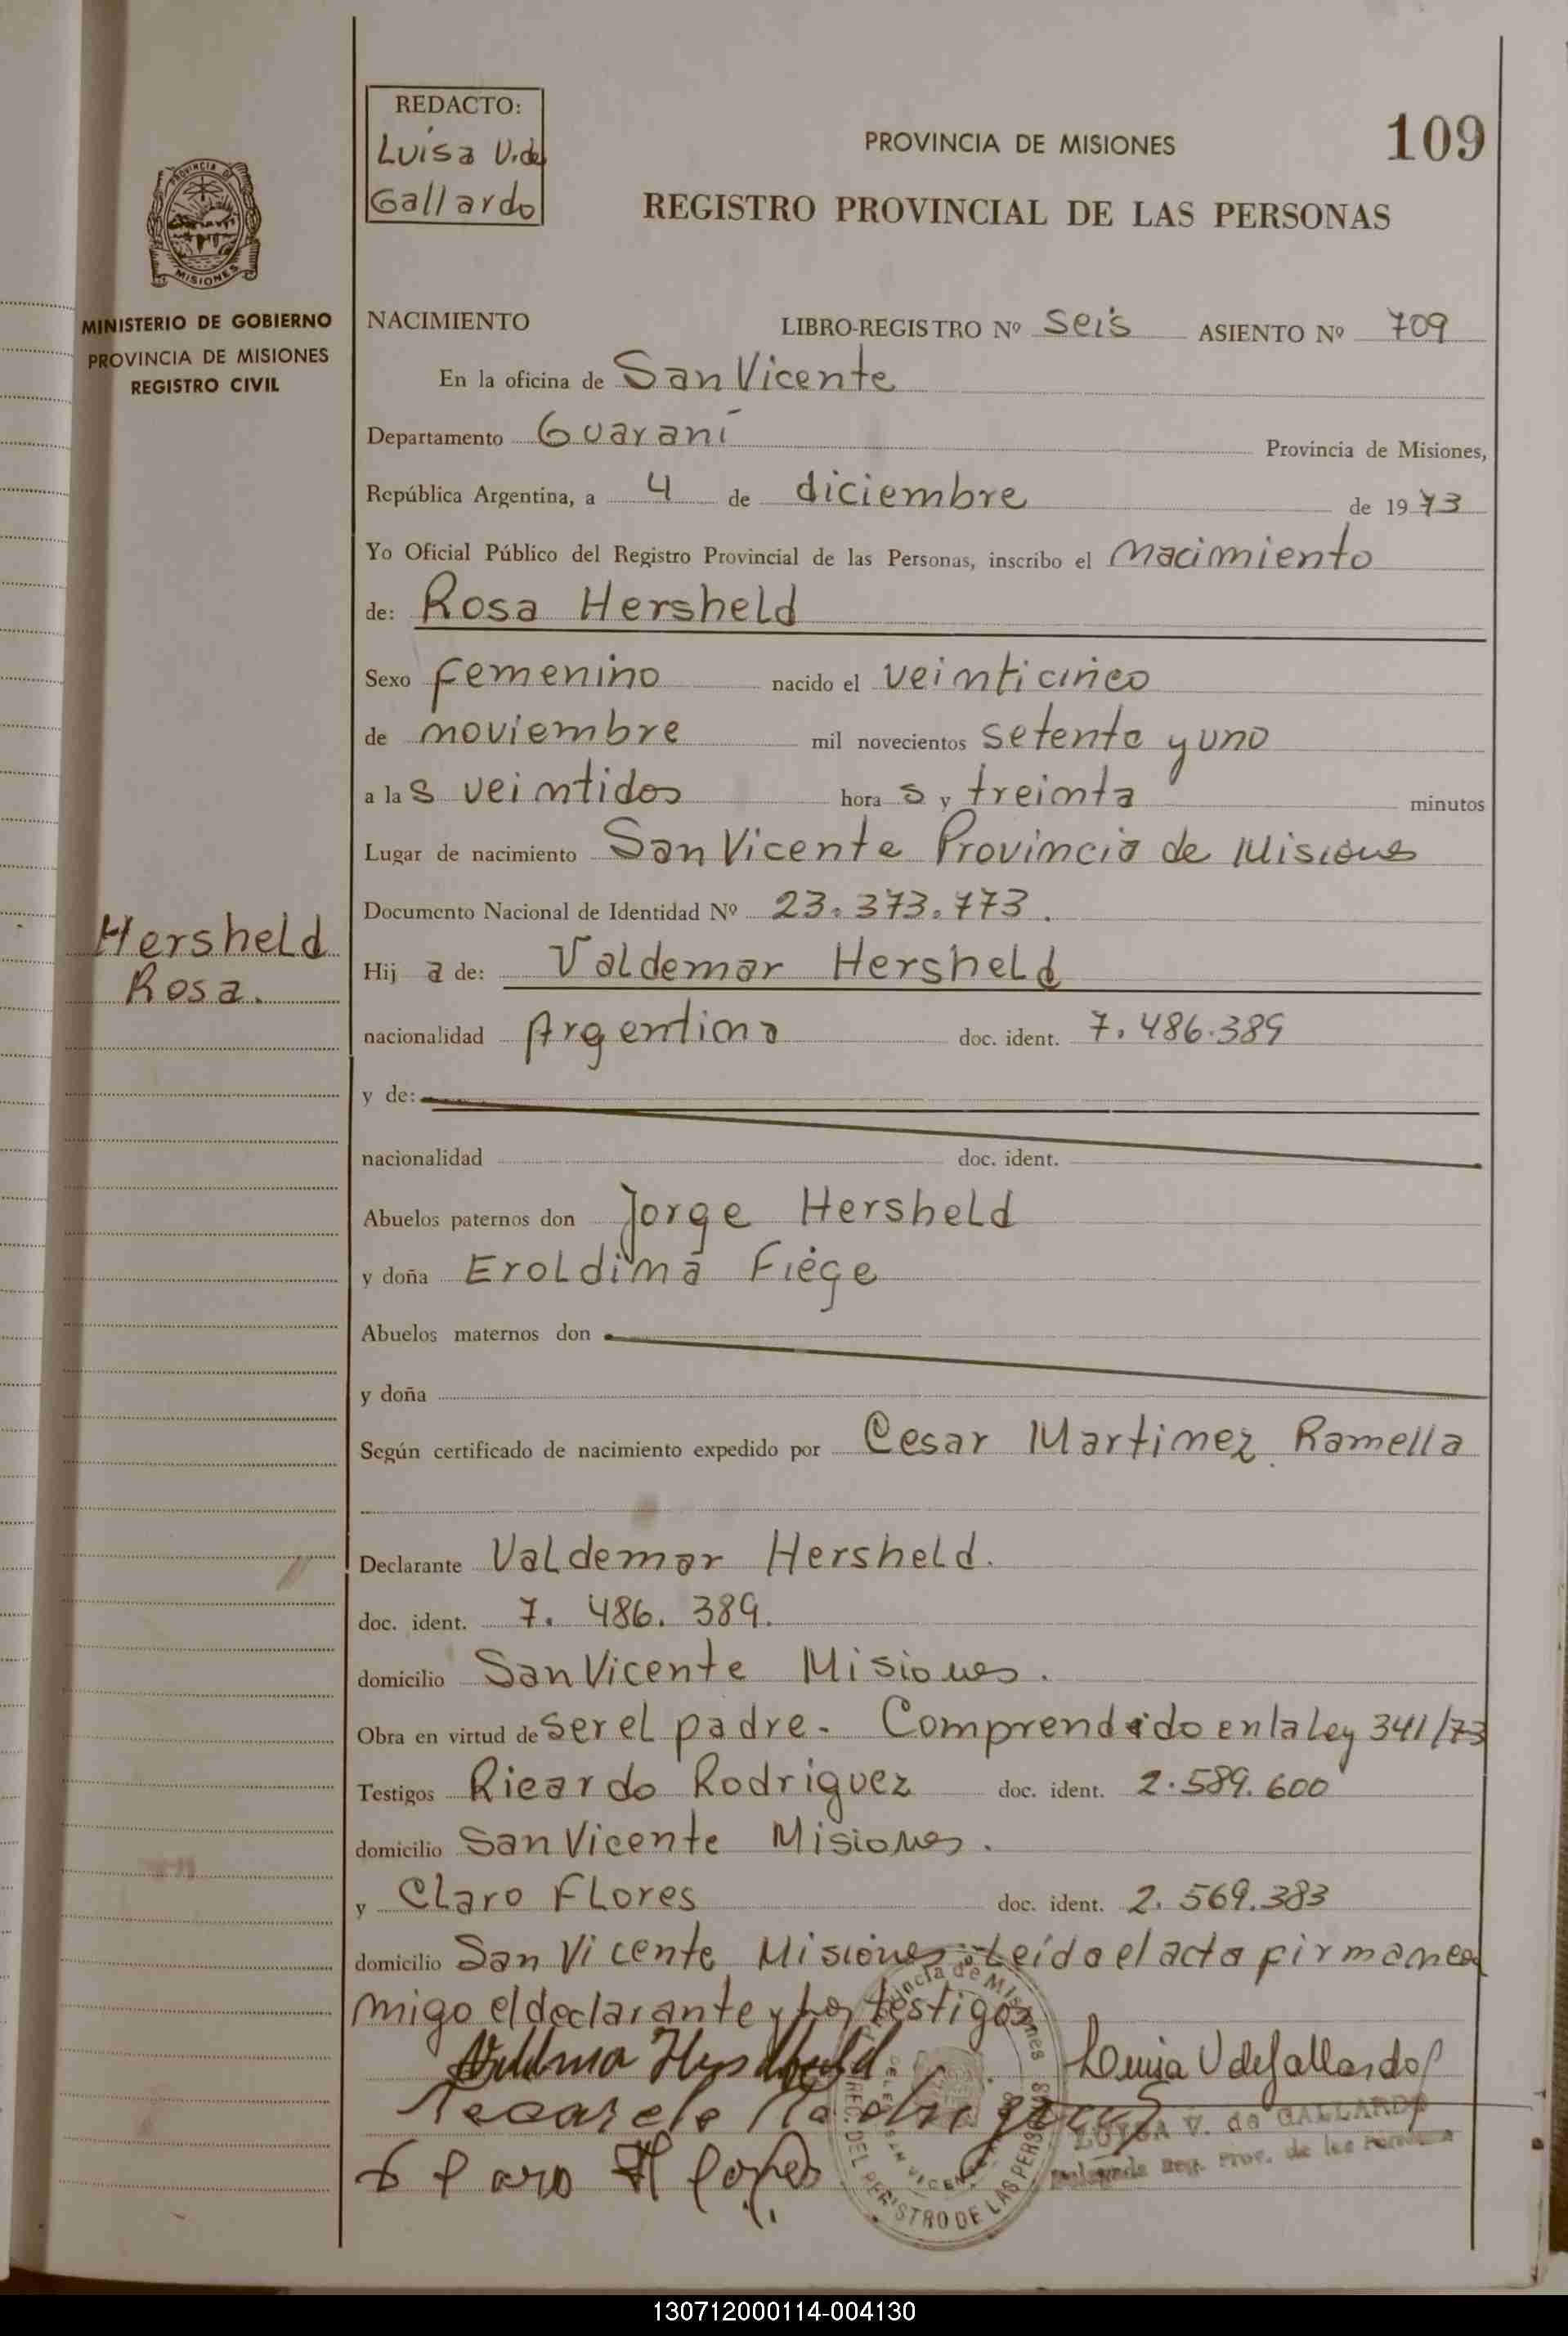 REDACTO:
Luisa V. de
Gallardo
PROVINCIA DE MISIONES
109
REGISTRO PROVINCIAL DE LAS PERSONAS
PROVINCIA DE
MISIONES
MINISTERIO DE GOBIERNO
PROVINCIA DE MISIONES
REGISTRO CIVIL
NACIMIENTO LIBRO-REGISTRO Nº Seis ASIENTO Nº 709
En la oficina de San Vicente
Departamento Guaraní Provincia de Misiones,
República Argentina, a 4 de diciembre de 1973
Yo Oficial Público del Registro Provincial de las Personas, inscribo el nacimiento
de: Rosa Hersheld
Sexo femenino nacido el veinticinco
de noviembre mil novecientos setenta y uno
a las veintidos horas y treinta minutos
Lugar de nacimiento San Vicente Provincia de Misiones
Documento Nacional de Identidad Nº 23.373.773.
Hersheld
Rosa.
Hija de: Valdemar Hersheld
nacionalidad Argentina doc. ident. 7.486.389
y de:
nacionalidad doc. ident.
Abuelos paternos don Jorge Hersheld
y doña Eroldina Fiege
Abuelos maternos don
y doña
Según certificado de nacimiento expedido por Cesar Martinez Ramella
Declarante Valdemar Hersheld.
doc. ident. 7.486.389.
domicilio San Vicente Misiones.
Obra en virtud de ser el padre. Comprendido en la Ley 341/73
Testigos Ricardo Rodriguez doc. ident. 2.589.600
domicilio San Vicente Misiones.
y Claro Flores doc. ident. 2.569.383
domicilio San Vicente Misiones. Leído el acta firman con
migo el declarante y los testigos
Luisa V de Gallardo
LUISA V. de GALLARDO
Claro Flores
REG. DEL REGISTRO DE LAS PERSONAS
130712000114-004130